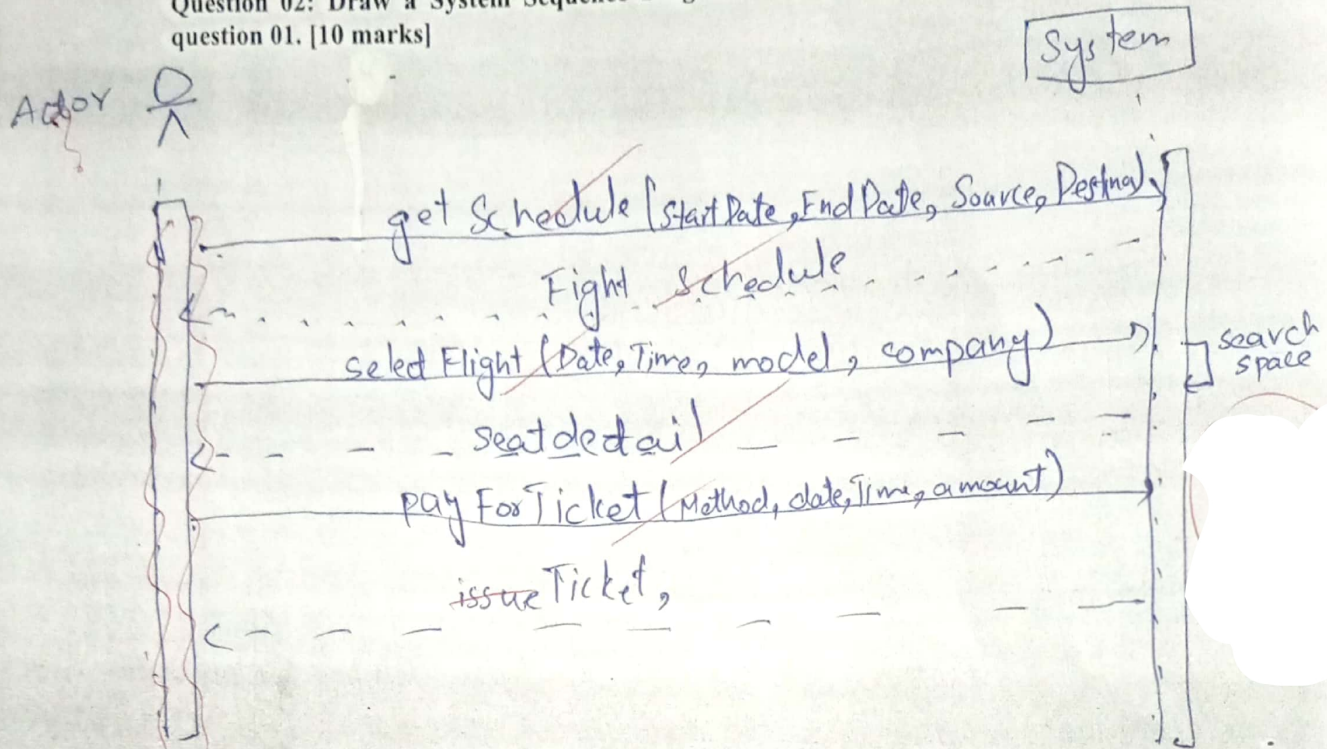 Question 02: Draw a System
question 01. [10 marks]
System
Actor
get Schedule (Start Date, End Date, Source, Destina)
Fight schedule
select Flight (Date, Time, model, company)
search
space
seat detail
pay For Ticket (Method, date, Time, amount)
issue Ticket,